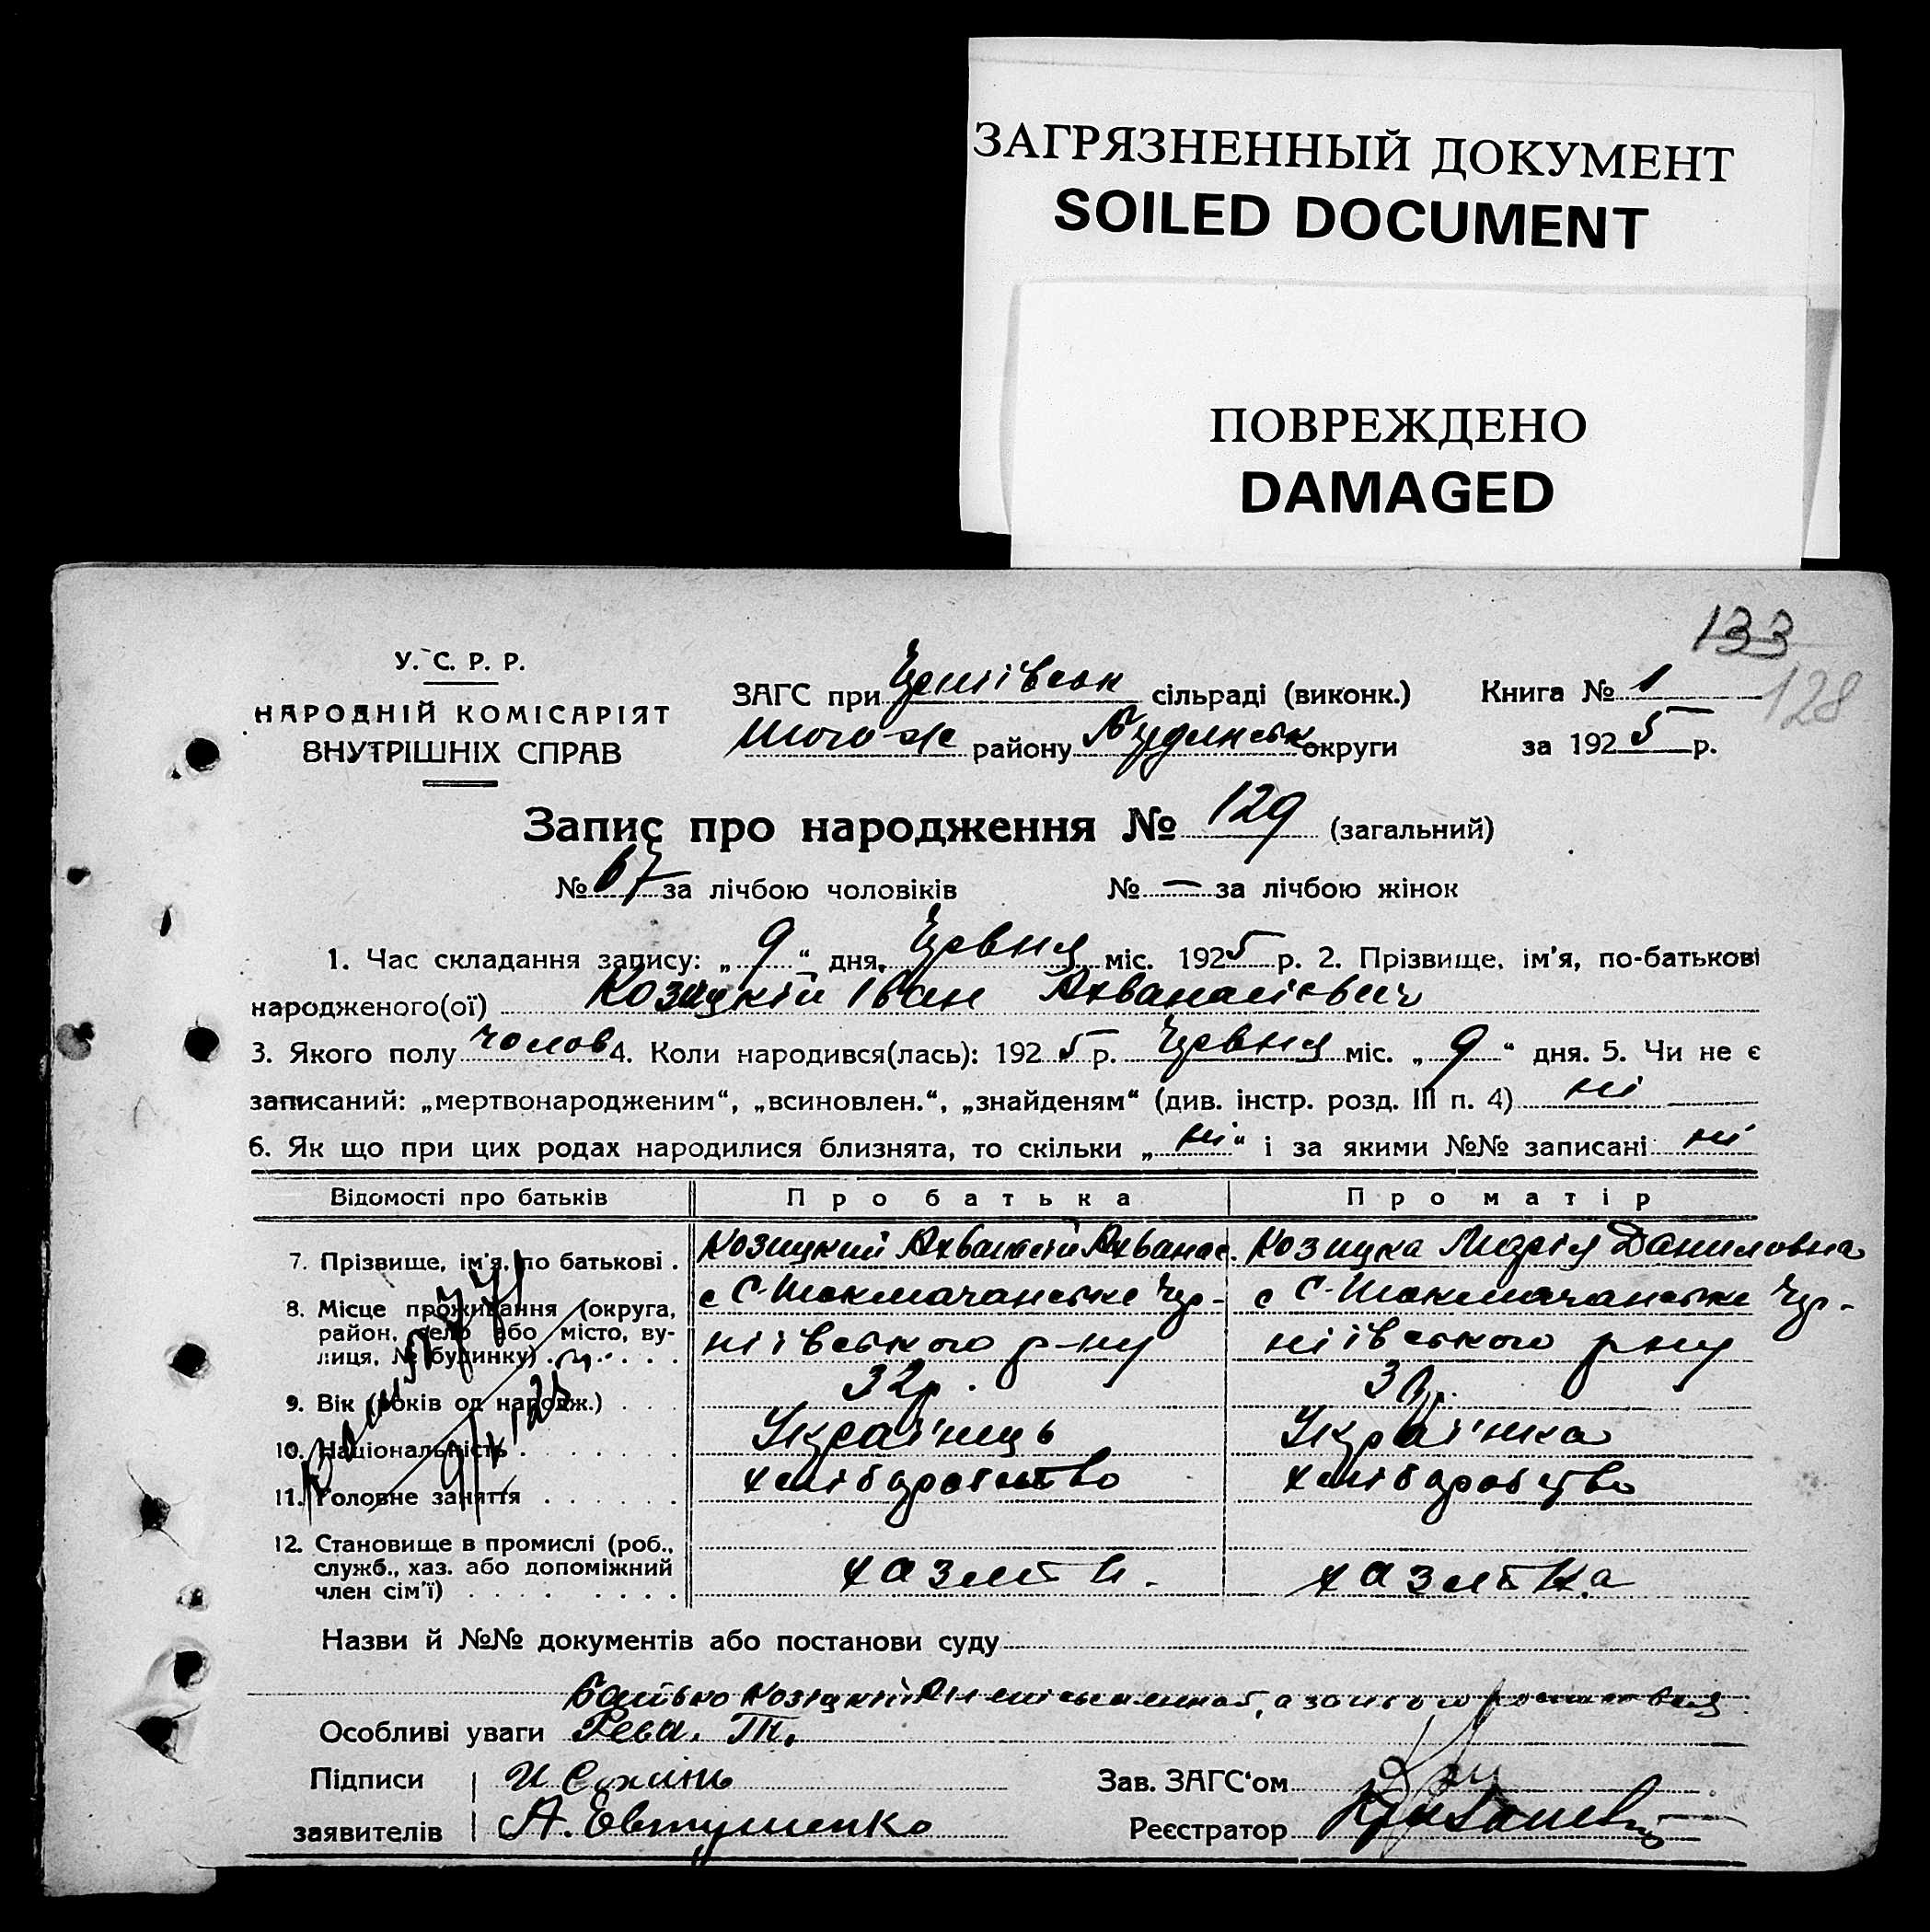 ЗАГРЯЗНЕННЫЙ ДОКУМЕНТ
SOILED DOCUMENT
ПОВРЕЖДЕНО
DAMAGED
133
128
У. С. Р. Р.
НАРОДНІЙ КОМІСАРІЯТ
ВНУТРІШНІХ СПРАВ
ЗАГС при сільраді (виконк.) Книга № 1
того ж району округи за 1925 р.
Запис про народження № 129 (загальний)
№ 67 за лічбою чоловіків № — за лічбою жінок
1. Час складання запису: „9“ дня, Червня міс. 1925 р. 2. Прізвище, ім'я, по-батькові
народженого(ої) Козицкій Іван Ахванасієвич
3. Якого полу чолов 4. Коли народився(лась): 1925 р. Червня міс. „9“ дня. 5. Чи не є
записаний: „мертвонародженим“, „всиновлен.“, „знайденям“ (див. інстр. розд. III п. 4) ні
6. Як що при цих родах народилися близнята, то скільки „ні“ і за якими №№ записані ні
Відомості про батьків Про батька Про матір
7. Прізвище, ім'я, по батькові . Козицкий Ахванасій Ахванас. Козицка Марія Даниловна
8. Місце проживання (округа, район, село або місто, вулиця, № будинку) . . . . .
ніївського р-ну ніївського р-ну
9. Вік (років од народж.) . . . 32 р.
10. Національність . . . . . . Українець Українка
11. Головне заняття . . . . . . хлібаробство хлібаробство
12. Становище в промислі (роб., служб., хаз. або допоміжний член сім'ї) . . . . . . . . хазяїн. хазяйка
Назви й №№ документів або постанови суду
батько Козіцкій
Особливі уваги Рева.
Підписи Зав. ЗАГС'ом
заявителів А. Євтушенко Реєстратор